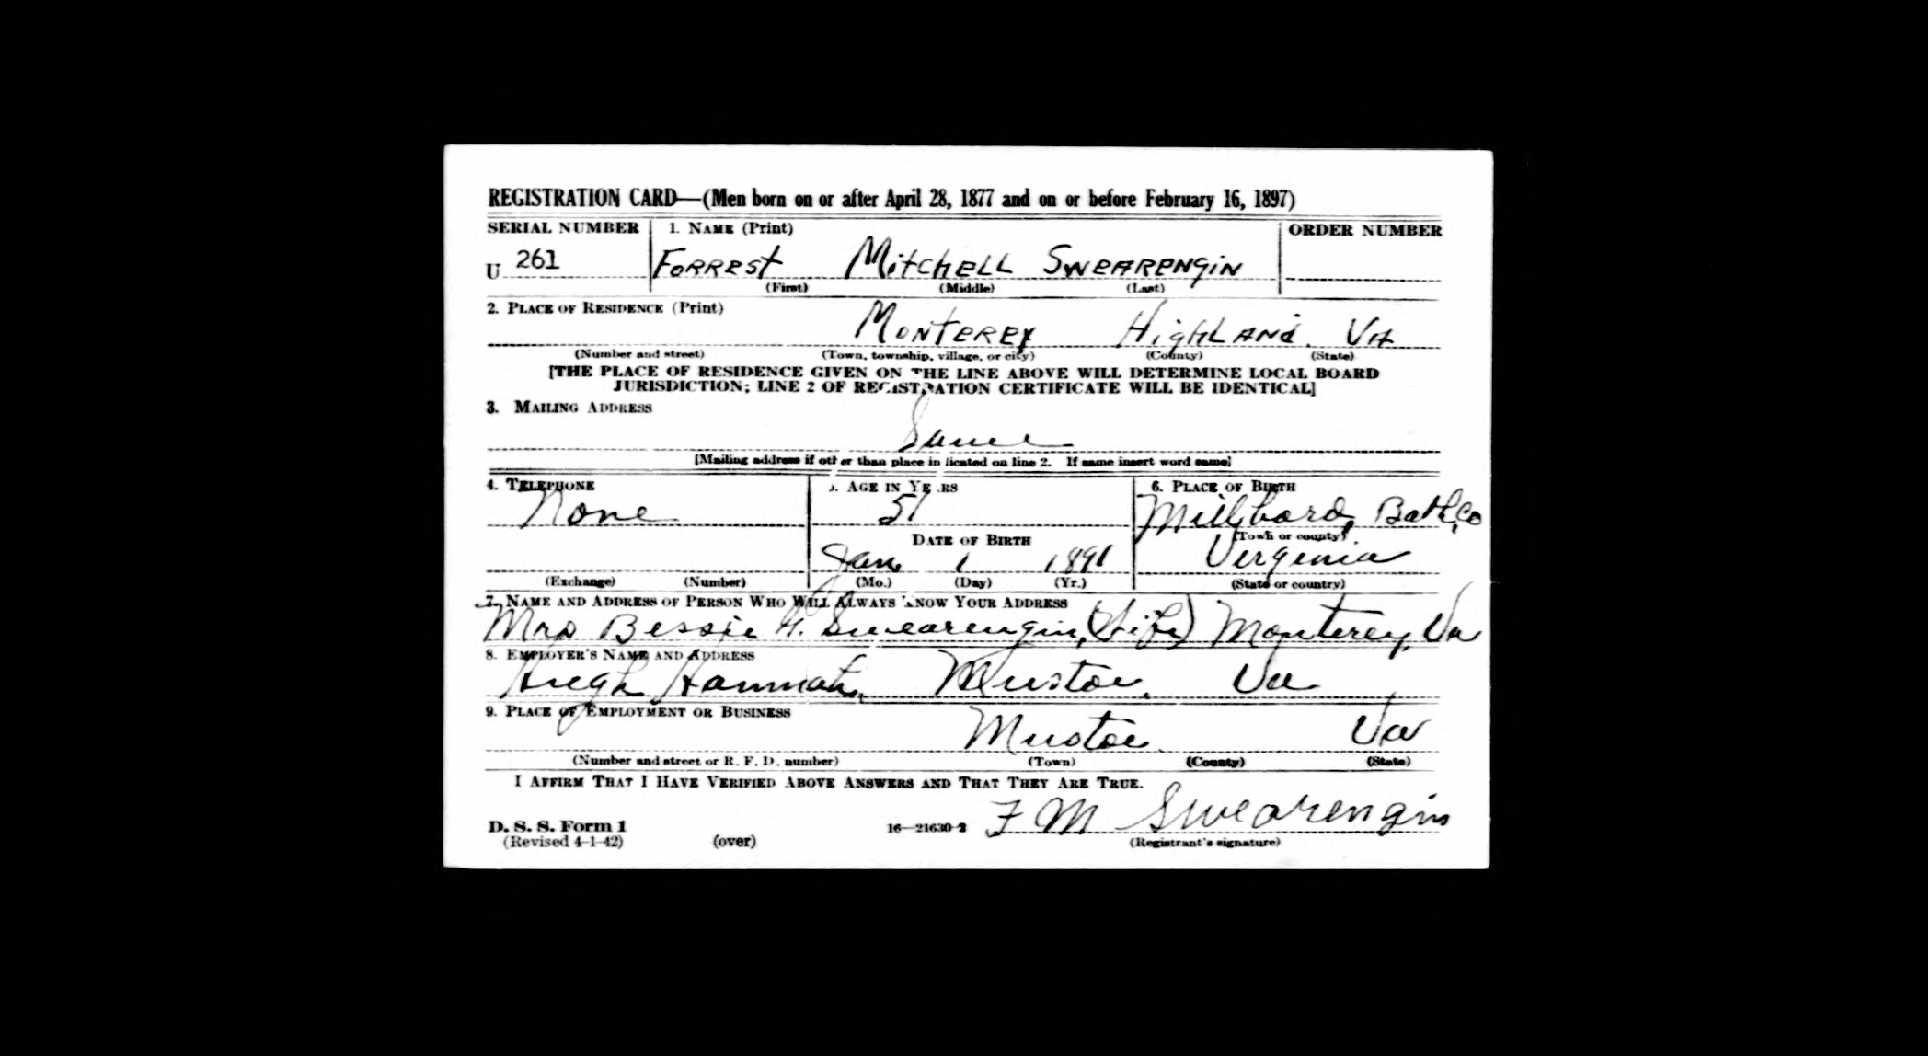 REGISTRATION CARD—(Men born on or after April 28, 1877 and on or before February 16, 1897)
SERIAL NUMBER 1. NAME (Print) ORDER NUMBER
U 261 Forrest Mitchell Swearengin
(First) (Middle) (Last)
2. PLACE OF RESIDENCE (Print)
Monterey Highland. VA
(Number and street) (Town, township, village, or city) (County) (State)
[THE PLACE OF RESIDENCE GIVEN ON THE LINE ABOVE WILL DETERMINE LOCAL BOARD
JURISDICTION; LINE 2 OF REGISTRATION CERTIFICATE WILL BE IDENTICAL]
3. MAILING ADDRESS
Same
[Mailing address if other than place indicated on line 2. If same insert word same]
4. TELEPHONE 5. AGE IN YEARS 6. PLACE OF BIRTH
None 51 Millboro, Bath, Co
DATE OF BIRTH (Town or county)
Jan 1 1891 Vergenia
(Exchange) (Number) (Mo.) (Day) (Yr.) (State or country)
7. NAME AND ADDRESS OF PERSON WHO WILL ALWAYS KNOW YOUR ADDRESS
Mrs Bessie Swearengin, (Wife) Monterey, Va
8. EMPLOYER'S NAME AND ADDRESS
Hugh Hannah, Mustoe, Va
9. PLACE OF EMPLOYMENT OR BUSINESS
Mustoe. Va
(Number and street or R. F. D. number) (Town) (County) (State)
I AFFIRM THAT I HAVE VERIFIED ABOVE ANSWERS AND THAT THEY ARE TRUE.
D. S. S. Form 1 16—21630-2 F M Swearengin
(Revised 4-1-42) (over) (Registrant's signature)